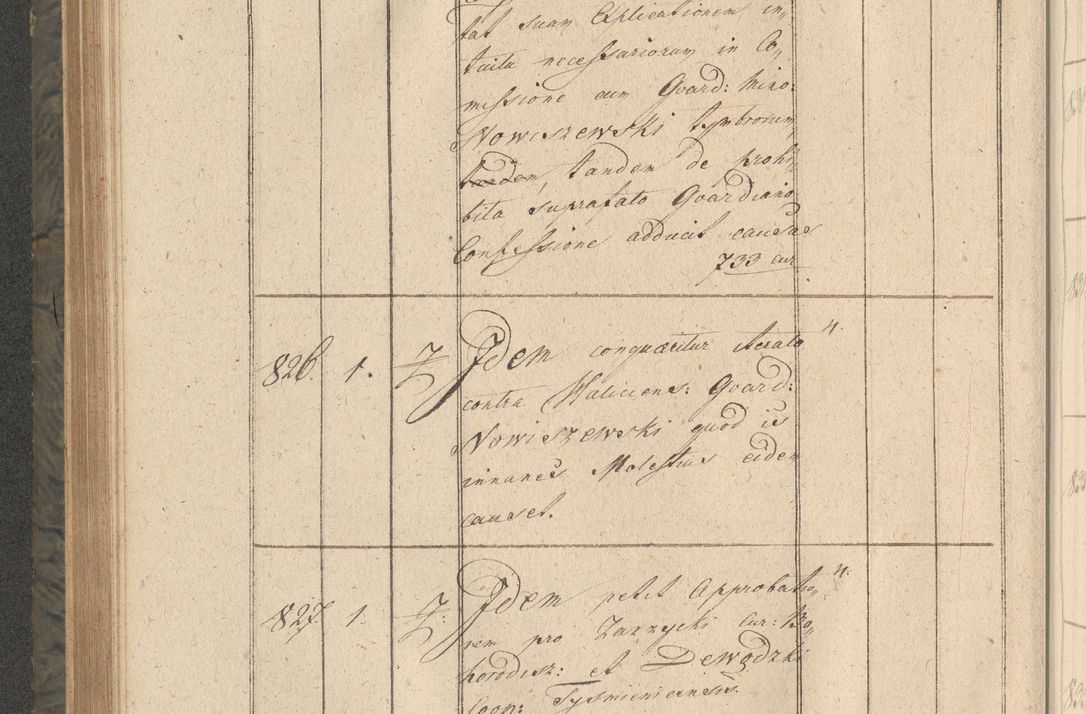 tat suam Explicationem in„
tuitu necessariorum in Co„
missione cum Guard: Mino:
Nowiszewski
tandem, tandem de prohi„
bita suprafato Guardiano
Confessione adducit causas
733 cur
826. 1. 7/2 Idem conquæritur iterato 4.
contra Haliciens: Guard:
Nowiszewski quod is
innanes Molestias eidem
causet.
827. 1. 7/2: Idem petit Approbatio„ 4.
nem pro Zarzycki Cur: Bo„
horodisz: et Dewodzki
Coop: Tysmienicensis